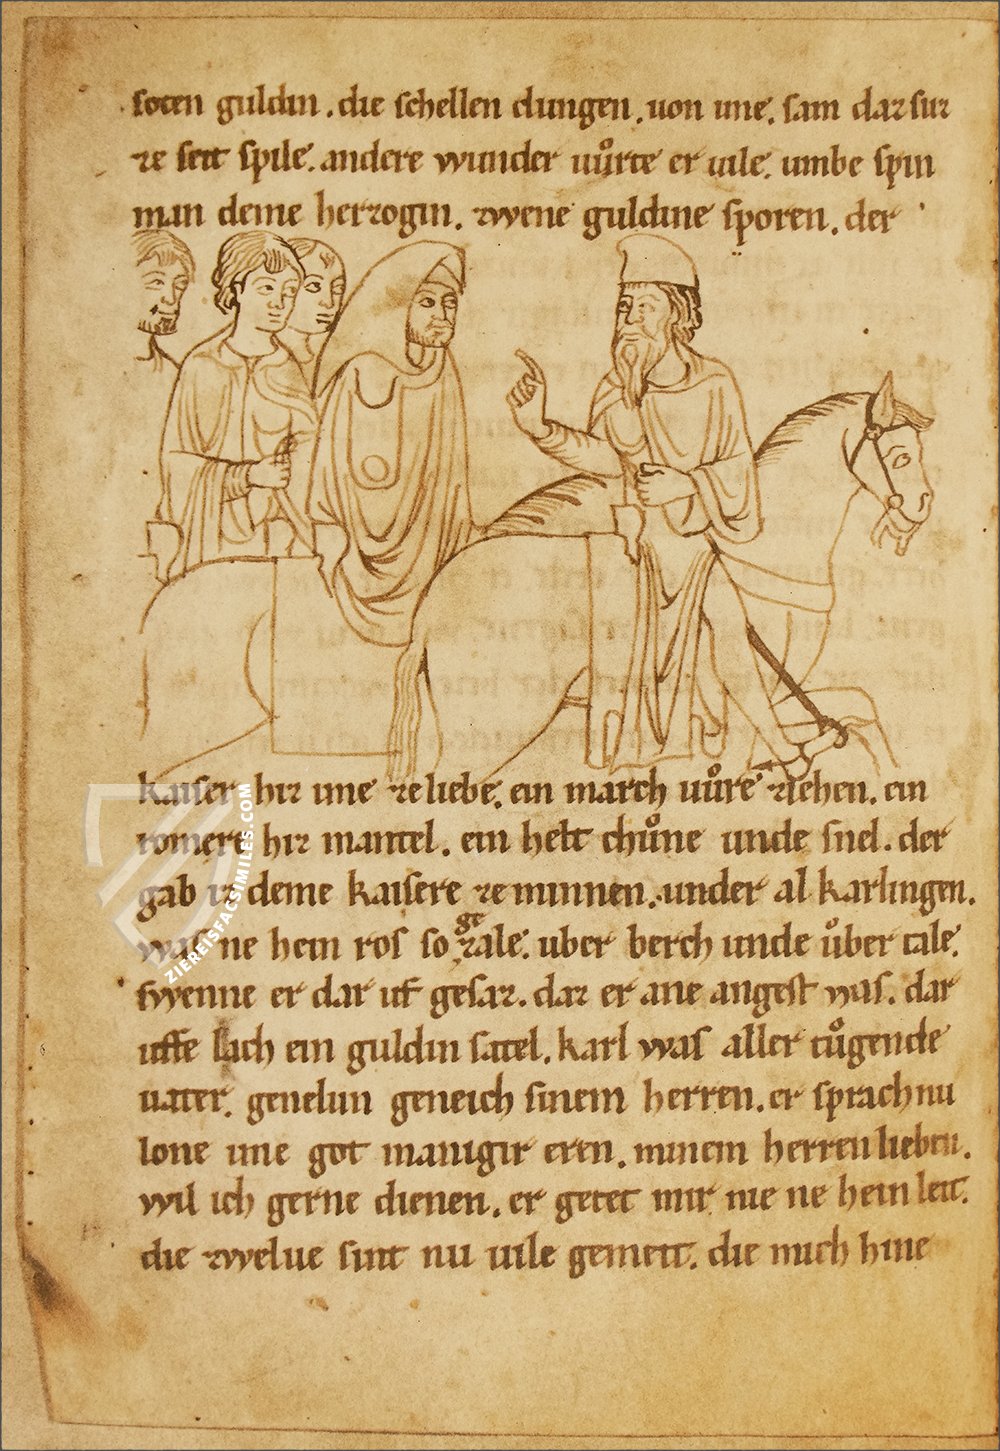 soten guldin . die schellen clungen . uon ime . sam daz sui
ze seit spile . andere wunder uůrte er uile . umbe spin
man deme herzogin . zwene guldine sporen . der
kaiser hiz ime ze liebe . ein march uůre ziehen . ein
romere hiz mantel . ein helt chůne unde snel . der
gab iz deme kaisere ze minnen . under al karlingen .
was ne hein ros so gezale . uber berch unde ůber tale .
swenne er dar uf gesaz . daz er ane angest was . dar
uffe lach ein guldin satel . karl was aller tůgende
uater . genelun geneich sinem herren . er sprach nu
lone ime got manigir eren . minem herren lieben .
wil ich gerne dienen . er getet mir nie ne hein leit .
die zwelue sint nu uile gemeit . die mich hine
ZIEREISFACSIMILES.COM